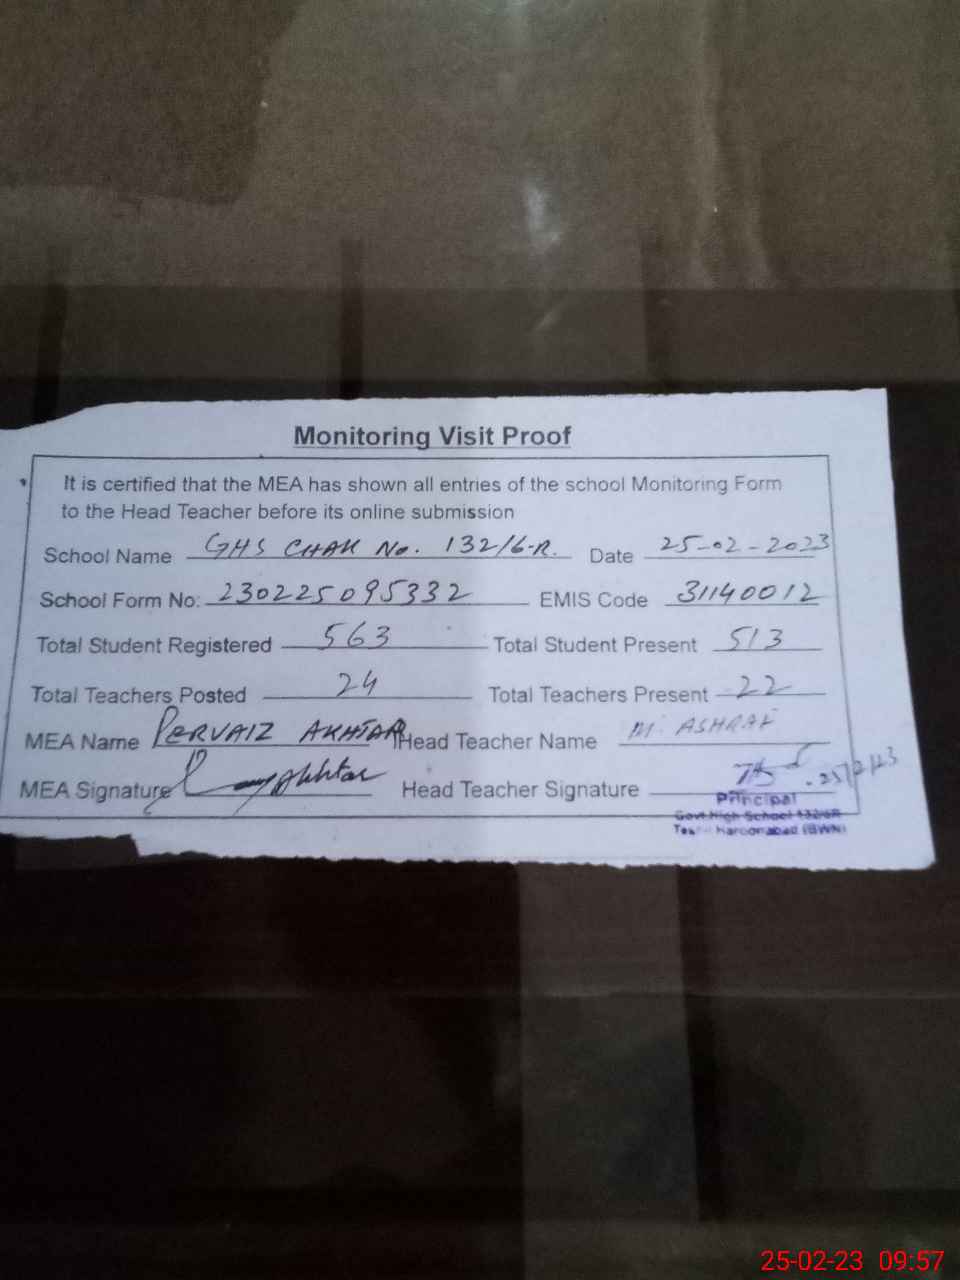 Monitoring Visit Proof
It is certified that the MEA has shown all entries of the school Monitoring Form
to the Head Teacher before its online submission
School Name GHS CHAK No. 132/6-R. Date 25-02-2023
School Form No: 230225095332 EMIS Code 31140012
Total Student Registered 563 Total Student Present 513
Total Teachers Posted 24 Total Teachers Present 22
MEA Name PERVAIZ AKHTAR Head Teacher Name M. ASHRAF
MEA Signature Akhtar Head Teacher Signature 25/2/23
Principal
Govt High School 132/6R
Haroonabad (BWN)
25-02-23 09:57